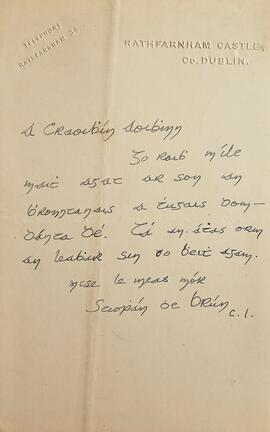 TELEPHONE
RATHFARNHAM 36.
RATHFARNHAM CASTLE,
Co. DUBLIN.
A Craoibhín Aoibhinn
Go raibh míle
mait agat ar son an
bronntanais a tugais dom-
Tá an-átas orm
an leabhar sin do beit agam.
mise le meas mór
Stiopán de Brún
C.I.